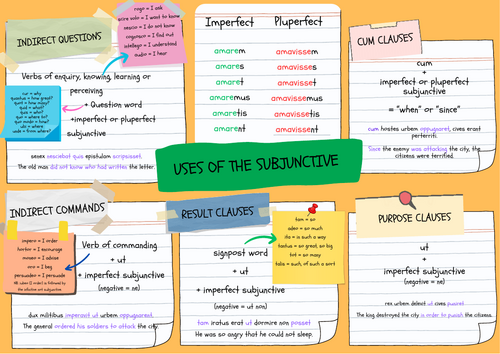 INDIRECT QUESTIONS
rogo = I ask
scire volo = I want to know
nescio = I do not know
cognosco = I find out
intellego = I understand
audio = I hear
Verbs of enquiry, knowing, learning or
perceiving
+ Question word
+imperfect or pluperfect
subjunctive
cur = why
quantus = how great?
quot = how many?
quid = what?
quis = who?
quo = where to?
quo modo = how?
ubi = where
unde = from where?
senex nesciebat quis epistulam scripsisset.
The old man did not know who had written the letter.
Imperfect Pluperfect
amarem amavissem
amares amavisses
amaret amavisset
amaremus amavissemus
amaretis amavissetis
amarent amavissent
CUM CLAUSES
cum
+
imperfect or pluperfect
subjunctive
= "when" or "since"
cum hostes urbem oppugnarent, cives erant
perterriti.
Since the enemy was attacking the city, the
citizens were terrified.
USES OF THE SUBJUNCTIVE
INDIRECT COMMANDS
impero = I order
hortor = I encourage
moneo = I advise
oro = I beg
persuadeo = I persuade
Verb of commanding
+ ut
+ imperfect subjunctive
(negative = ne)
dux militibus imperavit ut urbem oppugnarent.
The general ordered his soldiers to attack the city.
RESULT CLAUSES
tam = so
adeo = so much
ita = in such a way
tantus = so great, so big
tot = so many
talis = such, of such a sort
signpost word
+ ut
+ imperfect subjunctive
(negative = ut non)
tam iratus erat ut dormire non posset
He was so angry that he could not sleep.
PURPOSE CLAUSES
ut
+
imperfect subjunctive
(negative = ne)
rex urbem delevit ut cives puniret
The king destroyed the city in order to punish the citizens.